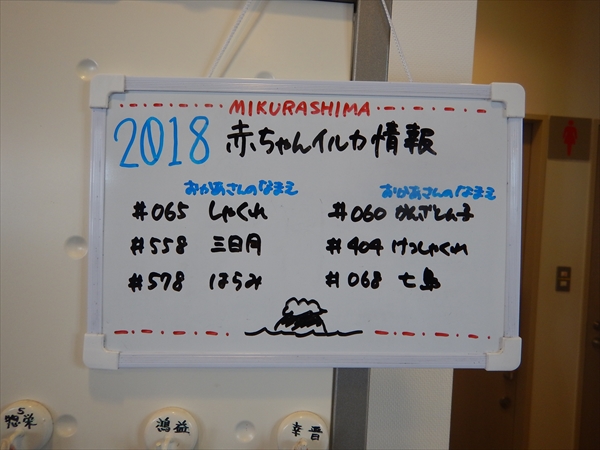 MIKURASHIMA
2018 赤ちゃんイルカ情報
おかあさんのなまえ
#065 しゃくれ
#558 三日月
#578 はらみ
おかあさんのなまえ
#060
#404 けっしゃくれ
#068 七島
5
惣栄
鴻益
幸晋